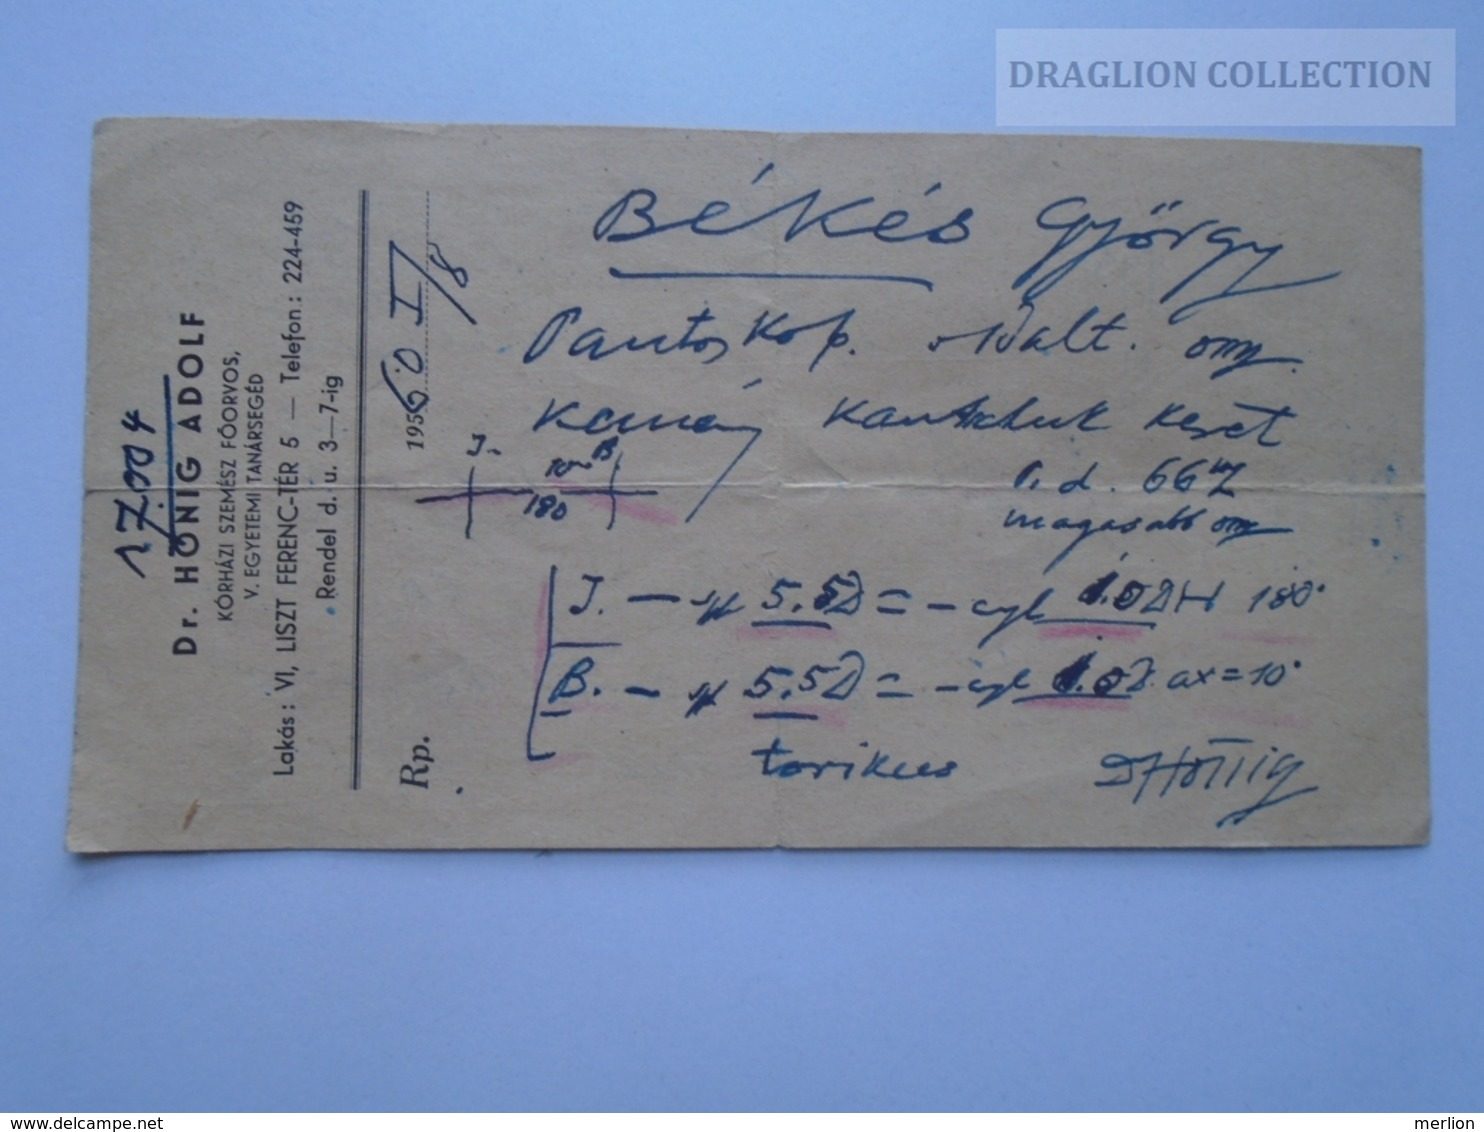 DRAGLION COLLECTION
17.004
Dr. HÖNIG ADOLF
KÓRHÁZI SZEMÉSZ FŐORVOS,
V. EGYETEMI TANÁRSEGÉD
Lakás: VI, LISZT FERENC-TÉR 5 — Telefon: 224-459
Rendel d. u. 3—7-ig
1956 60 I/8
Rp.
Békés György
Pantoskop. oldalt.
kemény kautschuk keret
p. d. 66
magasabb
J. B
10
180
J. — 5.5D = — cyl 1.0D H 180°
B. — 5.5D = — cyl 1.0D ax = 10°
torikus
Dr Hönig
merlion
www.delcampe.net